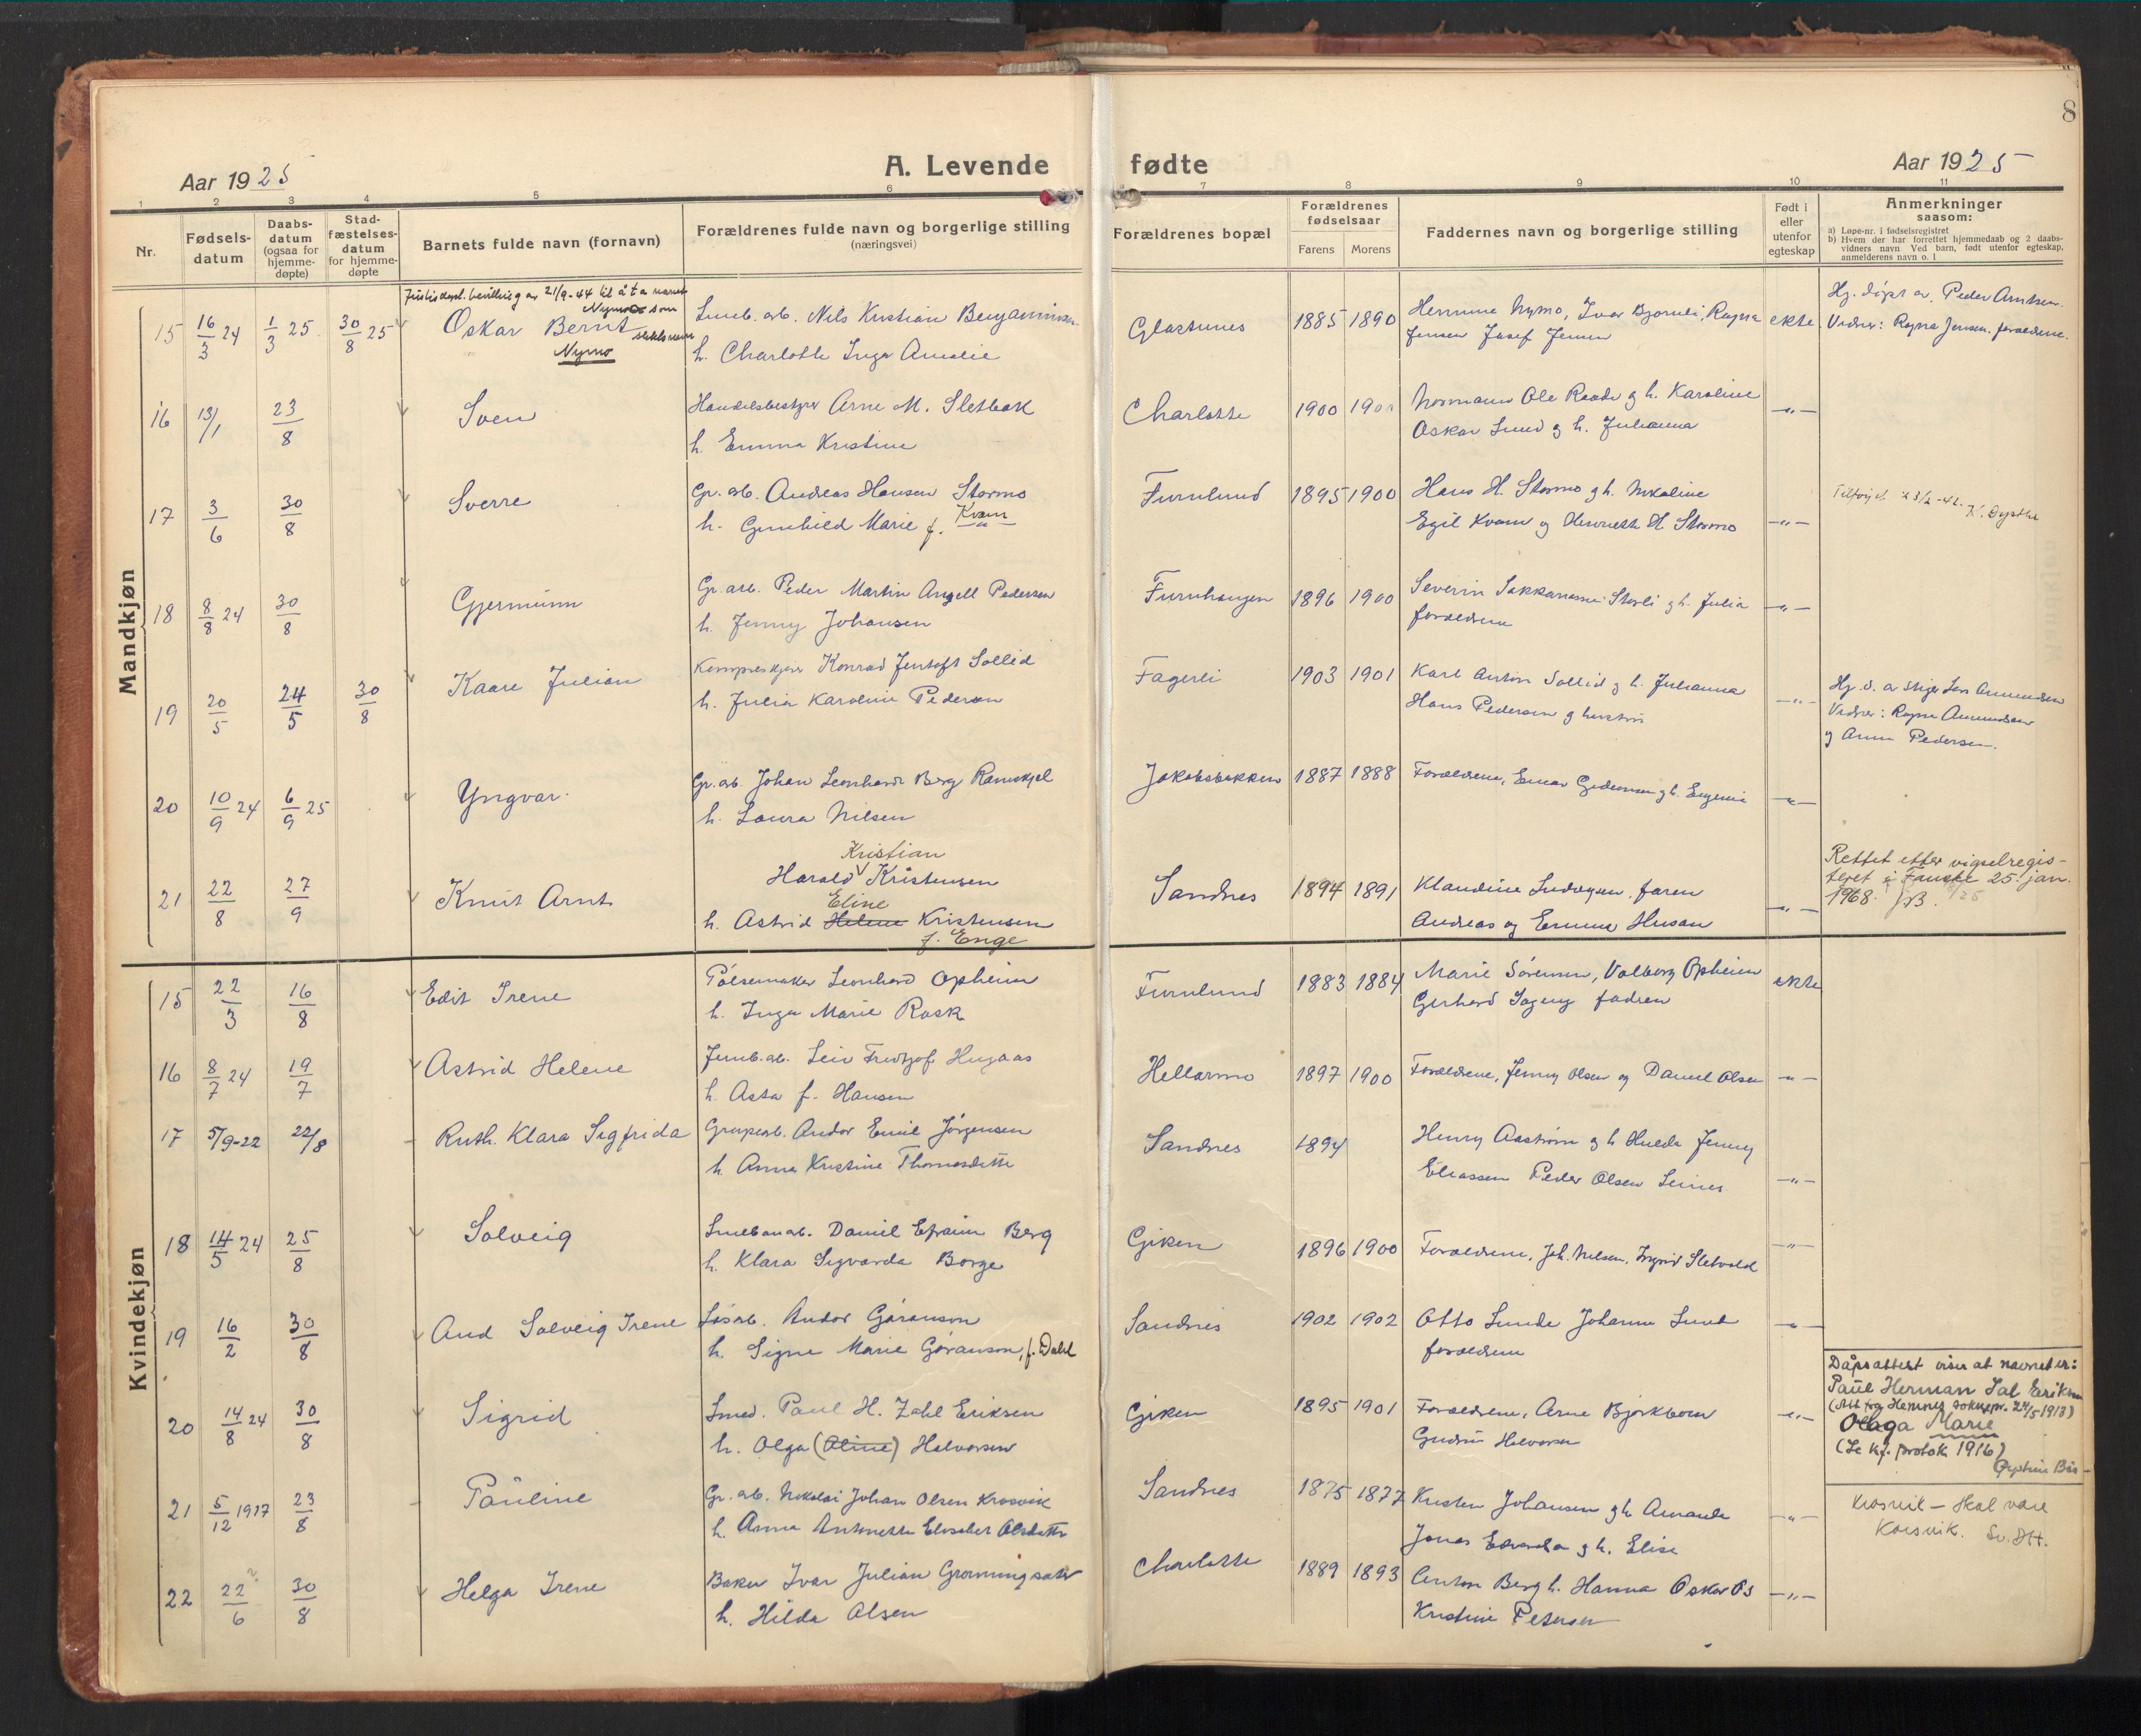 8
Aar 1925
A. Levende fødte
Aar 1925
1 2 3 4 5 6 7 8 9 10 11
Nr.
Fødsels-
datum
Daabs-
datum
(ogsaa for
hjemme-
døpte)
Stad-
fæstelses-
datum
for hjemme-
døpte
Barnets fulde navn (fornavn)
Forældrenes fulde navn og borgerlige stilling
(næringsvei)
Forældrenes bopæl
Forældrenes
fødselsaar
Farens Morens
Faddernes navn og borgerlige stilling
Født i
eller
utenfor
egteskap
Anmerkninger
saasom:
a) Løpe-nr. i fødselsregistret
b) Hvem der har forrettet hjemmedaab og 2 daabs-
vidners navn Ved barn, født utenfor egteskap,
anmelderens navn o. l
Mandkjøn
bevilling av 21/9-44 til å ta navnet
Nymo som
slektsnavn
15 16/3 24 1/3 25 30/8 25 Oskar Bernt Smeb. arb. Nils Kristian Benjaminsen Glastunes 1885 1890 Hermine Nymo, Ivar Bjørnli, Ragna ekte Hj. døpt av Peder Arntsen
Nymo h. Charlotte Inga Amalie Jensen Josef Jensen Vidner: Ragna Jensen, foreldrene.
16 13/1 23/8 Sven Handelsbestyrer Arne M. Sletbak Charlotte 1900 1900 Normann Ole Raade og h. Karoline —"—
h. Emma Kristine Oskar Lund og h. Julianna
17 3/6 30/8 Sverre Gr. arb. Andreas Hansen Stormo Furulund 1895 1900 Hans H. Stormo og h. Nikoline Tilføyd 23/2-42. K. Dysthe
h. Gunhild Marie f. Kvam Egil Kvam og Henriette H. Stormo —"—
18 8/8 24 30/8 Gjermunn Gr. arb. Peder Martin Angell Pedersen Furuhaugen 1896 1900 Severin Sakkariassen Storli og h. Julia —"—
h. Jenny Johansen foreldrene
19 20/5 24/5 30/8 Kaare Julian Konrad Jentoft Sollid Fagerli 1903 1901 Karl Anton Sollid og h. Julianna —"— Hj. d. av stiger Amundsen
h. Julia Karoline Pedersen Hans Pedersen og hustru Vidner: Ragna Amundsen
og Anna Pedersen.
20 10/9 24 6/9 25 Yngvar Gr. arb. Johan Leonhard Berg Ramskjel Jakobsbakken 1887 1888 Foreldrene, Einar Gedemsen og h. Eugenie —"—
h. Laura Nilsen
Kristian
21 22/8 27/9 Knut Arnt Harald Kristensen Sandnes 1894 1891 Klaudine Ludvigsen, faren Rettet etter vigselregis-
Eline teret i Fauske 25. jan.
h. Astrid Helene Kristensen Andreas og Emma Husan —"— 1968. JB.
f. Enge
Kvindekjøn
15 22/3 16/8 Edit Irene Pølsemaker Leonhard Opheim Furulund 1883 1884 Marie Sørensen, Valborg Opheim ekte
h. Inga Marie Rask Gerhard fadren
16 8/7 24 19/7 Astrid Helene Jernb. arb. Leiv Fredtjof Hugaas Hellarmo 1897 1900 Foreldrene, Jenny Olsen og Daniel Olsen —"—
h. Asta f. Hansen
17 5/9-22 22/8 Ruth Klara Sigfrida Grupearb. Andor Emil Jørgensen Sandnes 1894 Henry Aastrøm og h. Hulda Jenny
h. Anna Kristine Thomasdatter Eliassen Peder Olsen Leines —"—
18 14/5 24 25/8 Solveig Daniel Efraim Berg Giken 1896 1900 Foreldrene, Joh. Nilsen, Ingrid Sletvold —"—
h. Klara Sigvarda Borge
19 16/2 30/8 Aud Solveig Irene Løsarb. Andor Gøranson Sandnes 1902 1902 Otto Lunde Johanne Lund —"—
h. Signe Marie Gøranson, f. Dahl foreldrene
20 14/8 24 30/8 Sigrid Smed. Paul H. Zahl Eriksen Giken 1895 1901 Foreldrene, Arne Bjørkboen —"—
h. Olga (Oline) Halvorsen Gudrun Halvorsen
Dåpsattest viser at navnet er:
Paul Herman Sal Eriksen
(Att fra Hemnes sokнepr. 24/5 1913)
Olaga Marie
(Se kf. protok 1916)
21 5/12 1917 23/8 Pauline Gr. arb. Nikolai Johan Olsen Krosvik Sandnes 1875 1877 Kristen Johansen og h. Amanda —"— Krosvik — skal være
h. Anna Antonette Elisabet Olsdatter Jonas Edvardsen og h. Elise Korsvik. Sv. DH.
22 22/6 30/8 Helga Irene Baker Ivar Julian Grønningsæter Charlotte 1889 1893 Anton Berg h. Hanna Oskar Os —"—
h. Hilda Olsen Kristine Petersen